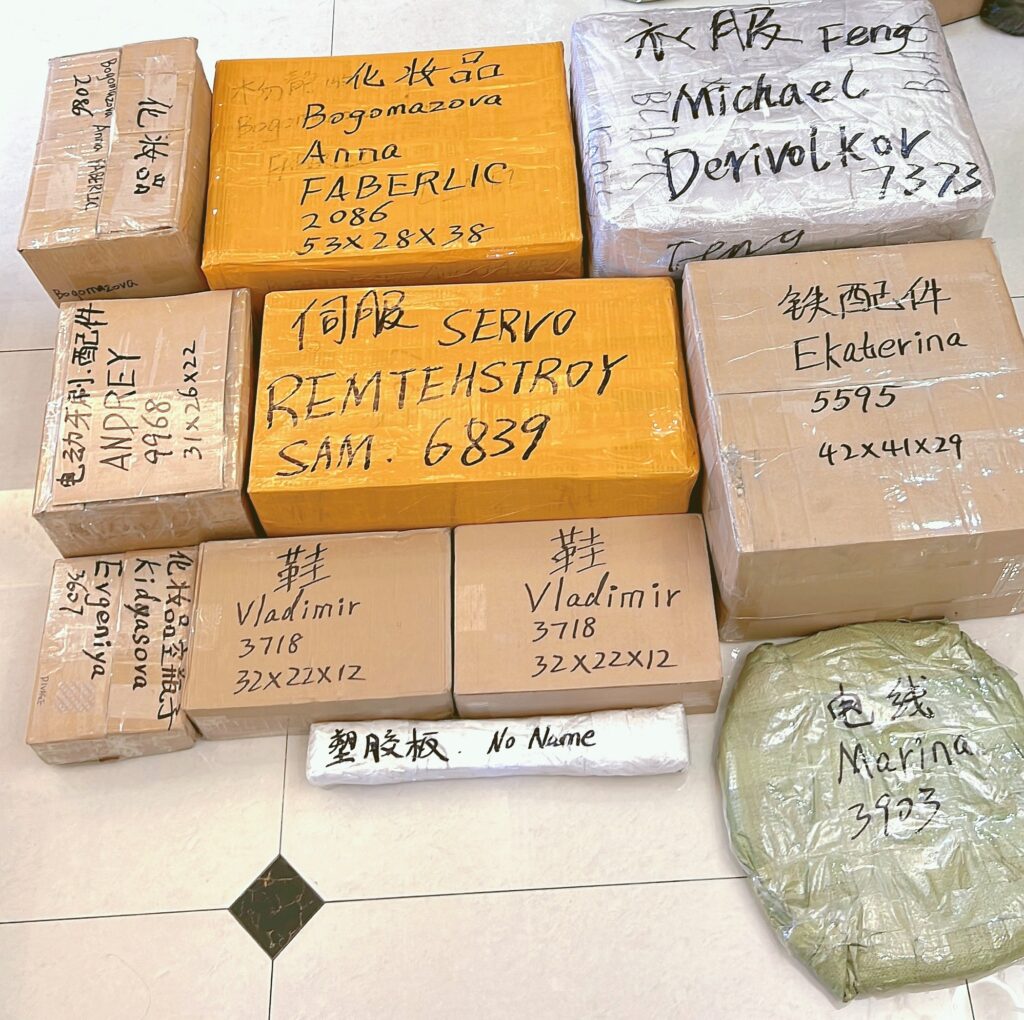 化妆品
Bogomazova Anna FABERLIC
2086
Bogomazova
化妆品
Bogomazova
Anna
FABERLIC
2086
53X28X38
衣服 Feng
Michael
Derivolkov
7373
Feng
电动牙刷.配件
ANDREY
9968
31X26X22
伺服 SERVO
REMTEHSTROY
SAM. 6839
铁配件
Ekaterina
5595
42X41X29
化妆品空瓶子
Kidyasova
Evgeniya
3607
鞋
Vladimir
3718
32X22X12
鞋
Vladimir
3718
32X22X12
塑胶板. No Name
电线
Marina
3903